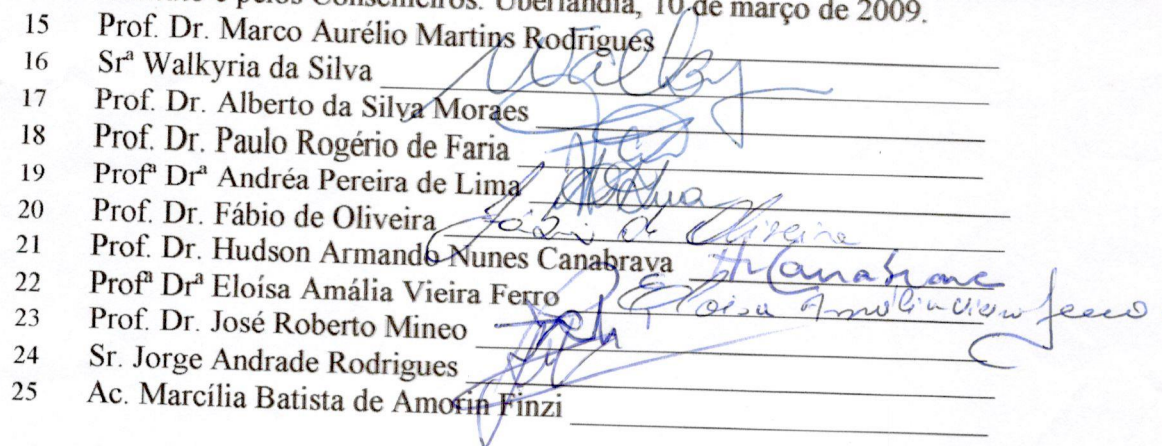 pelos Conselheiros. Uberlândia, 10 de março de 2009.
15 Prof. Dr. Marco Aurélio Martins Rodrigues
16 Srª Walkyria da Silva Walky
17 Prof. Dr. Alberto da Silva Moraes
18 Prof. Dr. Paulo Rogério de Faria
19 Profª Drª Andréa Pereira de Lima
20 Prof. Dr. Fábio de Oliveira Fábio de Oliveira
21 Prof. Dr. Hudson Armando Nunes Canabrava HACanabrava
22 Profª Drª Eloísa Amália Vieira Ferro Eloisa Amália Vieira Ferro
23 Prof. Dr. José Roberto Mineo
24 Sr. Jorge Andrade Rodrigues
25 Ac. Marcília Batista de Amorin Finzi